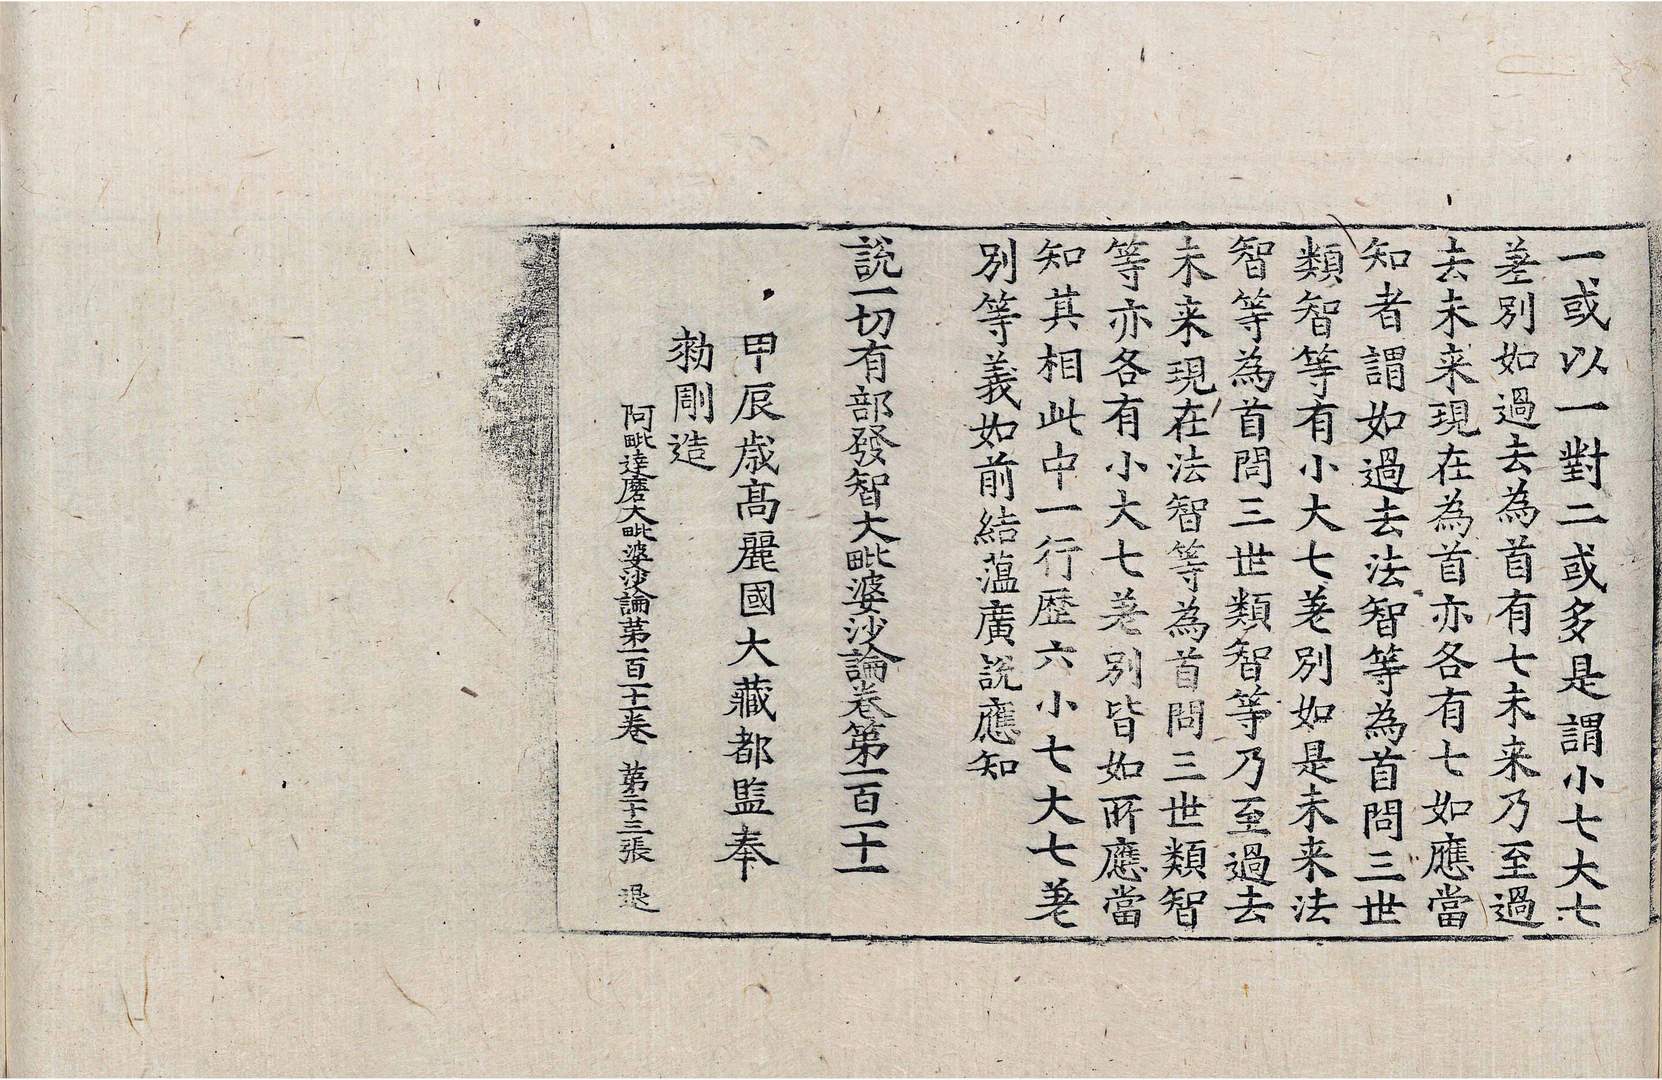 一或以一對二或多是謂小七大七
差別如過去為首有七未来乃至過
去未来現在為首亦各有七如應當
知者謂如過去法智等為首問三世
類智等有小大七差別如是未来法
智等為首問三世類智等乃至過去
未来現在法智等為首問三世類智
等亦各有小大七差別皆如所應當
知其相此中一行歷六小七大七差
別等義如前結蕰廣說應知
說一切有部發智大毗婆沙論卷第一百一十一
甲辰歲高麗國大藏都監奉
勑彫造
阿毗達磨大毗婆沙論第一百一十一卷 第二十三張 退